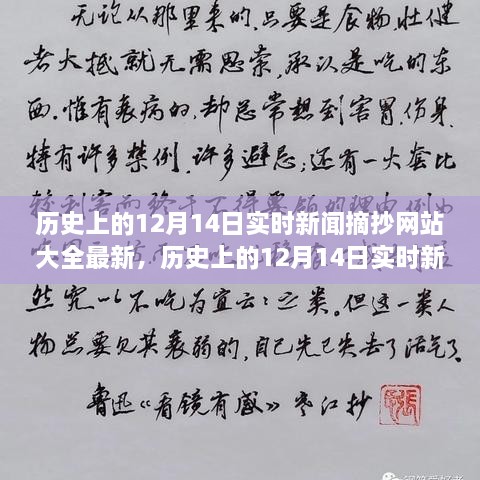 无论从那里来的,只要是食物,壮健
者大抵就无需思索,承认是吃的东
西。惟有衰病的,却总常想到害胃,伤身,
特有许多禁例,许多避忌;还有一大套比
较利害而终于不得要领的理由,例如
历史上的12月14日实时新闻摘抄网站
大全最新,历史上的12月14日实时新
然究以不吃为宜云云之类。但这一类人
物总要见其衰弱的,自己先已失去了活气了。
鲁迅《看镜有感》寒江抄